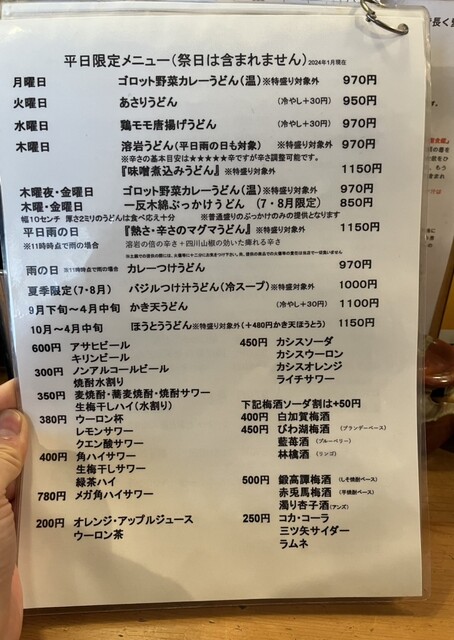 平日限定メニュー(祭日は含まれません)2024年1月現在
月曜日 ゴロット野菜カレーうどん(温)※特盛り対象外 970円
火曜日 あさりうどん (冷やし+30円) 950円
水曜日 鶏モモ唐揚げうどん (冷やし+30円) 970円
木曜日 溶岩うどん(平日雨の日も対象) ※特盛り対象外 970円
※辛さの基本目安は★★★★★辛ですが辛さ調整可能です。
『味噌煮込みうどん』※特盛り対象外 1150円
木曜夜・金曜日 ゴロット野菜カレーうどん(温)※特盛り対象外 970円
木曜・金曜日 一反木綿ぶっかけうどん (7・8月限定) 850円
幅10センチ 厚さ2ミリのうどんは食べ応え十分 ※普通盛りのぶっかけのみの提供となります
平日雨の日 『熱さ・辛さのマグマうどん』※特盛り対象外 1150円
※11時時点で雨の場合 溶岩の倍の辛さ+四川山椒の効いた痺れる辛さ
雨の日 ※11時時点で雨の場合 カレーつけうどん 970円
夏季限定(7・8月) バジルつけ汁うどん(冷スープ)※特盛り対象外 1000円
9月下旬~4月中旬 かき天うどん (冷やし+30円) 1100円
10月~4月中旬 ほうとううどん※特盛り対象外(+480円かき天ほうとう) 1150円
600円 アサヒビール
キリンビール
300円 ノンアルコールビール
焼酎水割り
350円 麦焼酎・蕎麦焼酎・焼酎サワー
生梅干しハイ(水割り)
380円 ウーロン杯
レモンサワー
クエン酸サワー
400円 角ハイサワー
生梅干しサワー
緑茶ハイ
780円 メガ角ハイサワー
200円 オレンジ・アップルジュース
ウーロン茶
450円 カシスソーダ
カシスウーロン
カシスオレンジ
ライチサワー
下記梅酒ソーダ割は+50円
400円 白加賀梅酒
450円 びわ湖梅酒 (ブランデーベース)
藍苺酒 (ブルーベリー)
林檎酒 (リンゴ)
500円 鍛高譚梅酒 (しそ焼酎ベース)
赤兎馬梅酒 (芋焼酎ベース)
濁り杏子酒(アンズ)
250円 コカ・コーラ
三ツ矢サイダー
ラムネ